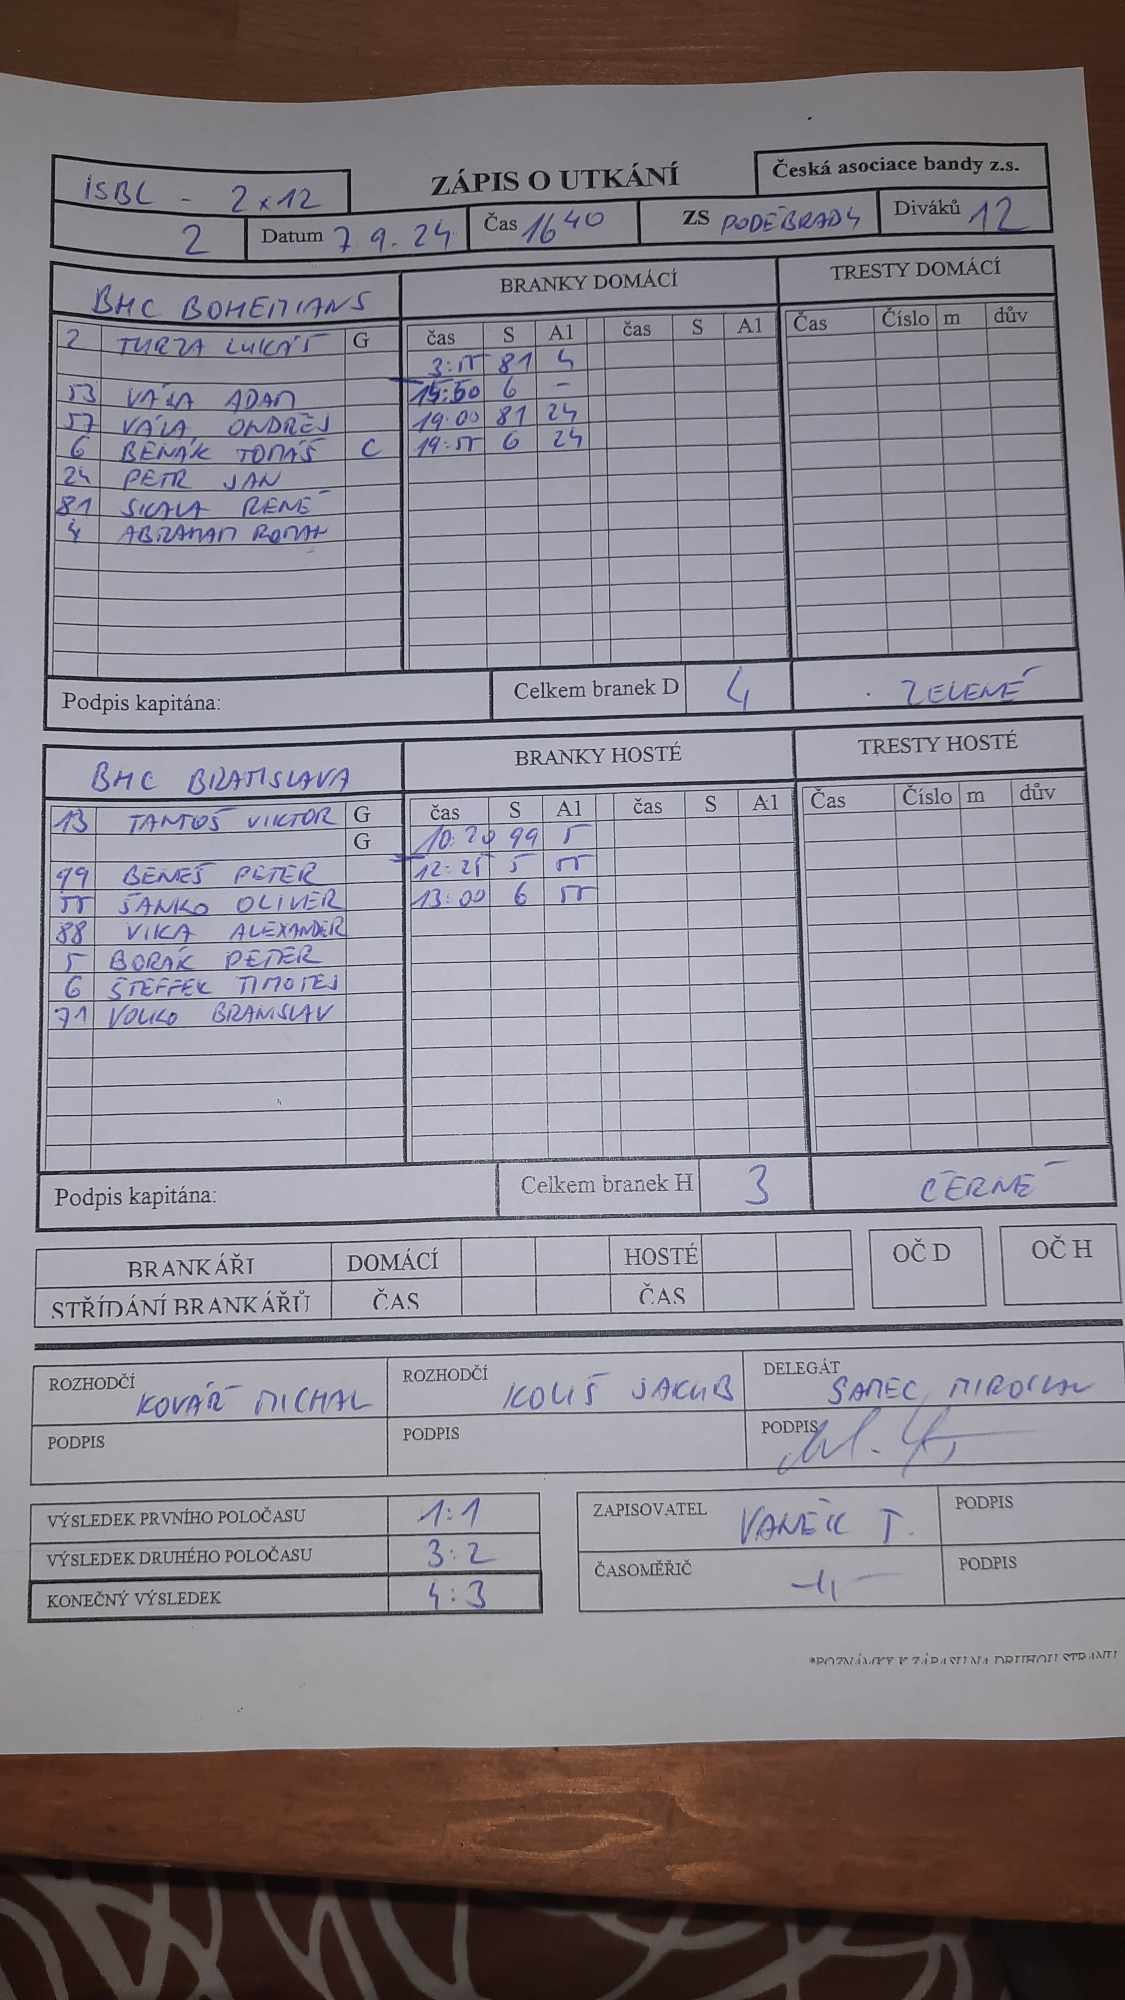 ISBL - 2x12 ZÁPIS O UTKÁNÍ Česká asociace bandy z.s.
2 Datum 7.9.24 Čas 16 40 ZS PODĚBRADY Diváků 12
BHC BOHEMIANS BRANKY DOMÁCÍ TRESTY DOMÁCÍ
2 TURZA LUKÁŠ G čas S A1 čas S A1 Čas Číslo m dův
3:55 81 4
53 VÁLA ADAM 15:50 6 -
57 VÁLA ONDŘEJ 19:00 81 24
6 BENÁK TOMÁŠ C 19:55 6 24
24 PETR JAN
81 SKALA RENÉ
4 ABRAHAM ROMAN
Podpis kapitána: Celkem branek D 4 ZELENÉ
BHC BRATISLAVA BRANKY HOSTÉ TRESTY HOSTÉ
13 TANTOŠ VIKTOR G čas S A1 čas S A1 Čas Číslo m dův
G 10:20 99 5
99 BENEŠ PETER 12:25 5 55
55 ŠANKO OLIVER 13:00 6 55
88 VIKA ALEXANDER
5 BORÁK PETER
6 ŠTEFFEK TIMOTEJ
71 VOLKO BRANISLAV
Podpis kapitána: Celkem branek H 3 ČERNÉ
BRANKÁŘI DOMÁCÍ HOSTÉ OČ D OČ H
STŘÍDÁNÍ BRANKÁŘŮ ČAS ČAS
ROZHODČÍ KOVÁŘ MICHAL ROZHODČÍ KOLIŠ JAKUB DELEGÁT ŠAMEC MIROSLAV
PODPIS PODPIS PODPIS
VÝSLEDEK PRVNÍHO POLOČASU 1:1 ZAPISOVATEL VANĚK T. PODPIS
VÝSLEDEK DRUHÉHO POLOČASU 3:2 ČASOMĚŘIČ -11- PODPIS
KONEČNÝ VÝSLEDEK 4:3
*POZNÁMKY K ZÁPASU NA DRUHOU STRANU